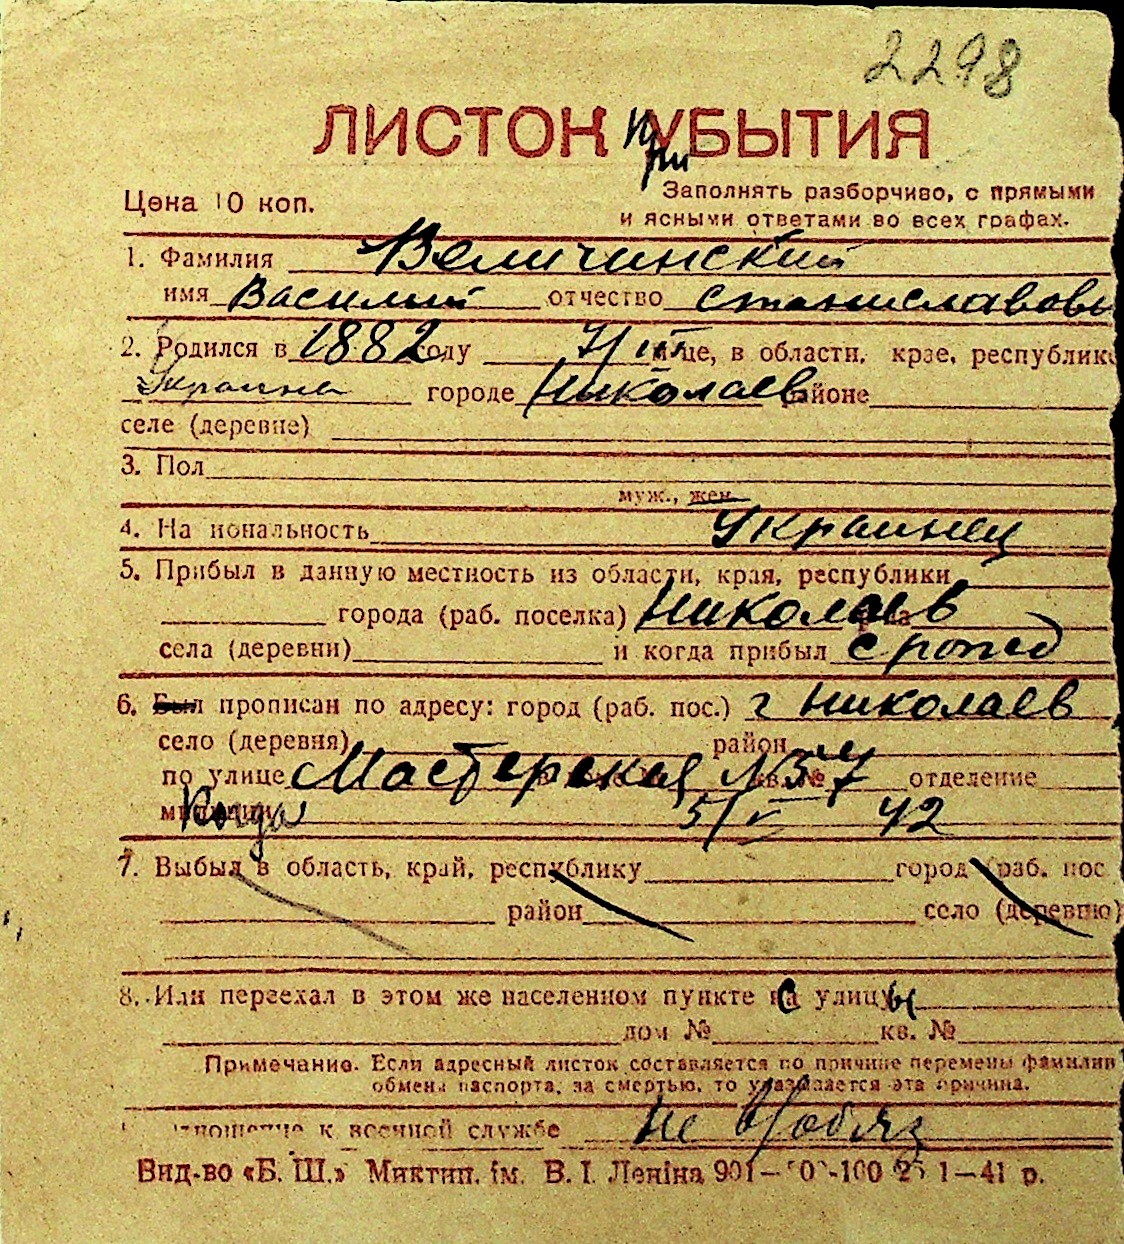 2298
ЛИСТОК УБЫТИЯ
При
Цена 10 коп.
Заполнять разборчиво, с прямыми
и ясными ответами во всех графах.
1. Фамилия Величинский
имя Василий отчество Станиславовь
2. Родился в 1882 году 7/III м-це, в области, крае, республике
Украина городе Николаев районе
селе (деревне)
3. Пол
муж., жен.
4. Национальность Украинец
5. Прибыл в данную местность из области, края, республики
города (раб. поселка) Николаев
села (деревни) и когда прибыл с рожд
6. Был прописан по адресу: город (раб. пос.) г Николаев
село (деревня) район
по улице Мастерская N57 кв. № отделение
милиции Когда 5/V 42
7. Выбыл в область, край, республику город (раб. пос
район село (деревню)
8. Или переехал в этом же населенном пункте с улицы
дом № кв. №
Примечание. Если адресный листок составляется по причине перемены фамилии
обмена паспорта, за смертью, то указывается эта причина.
отношение к военной службе не в/обяз
Вид-во «Б. Ш.» Миктип. ім. В. І. Леніна 901— -100 25 1—41 р.